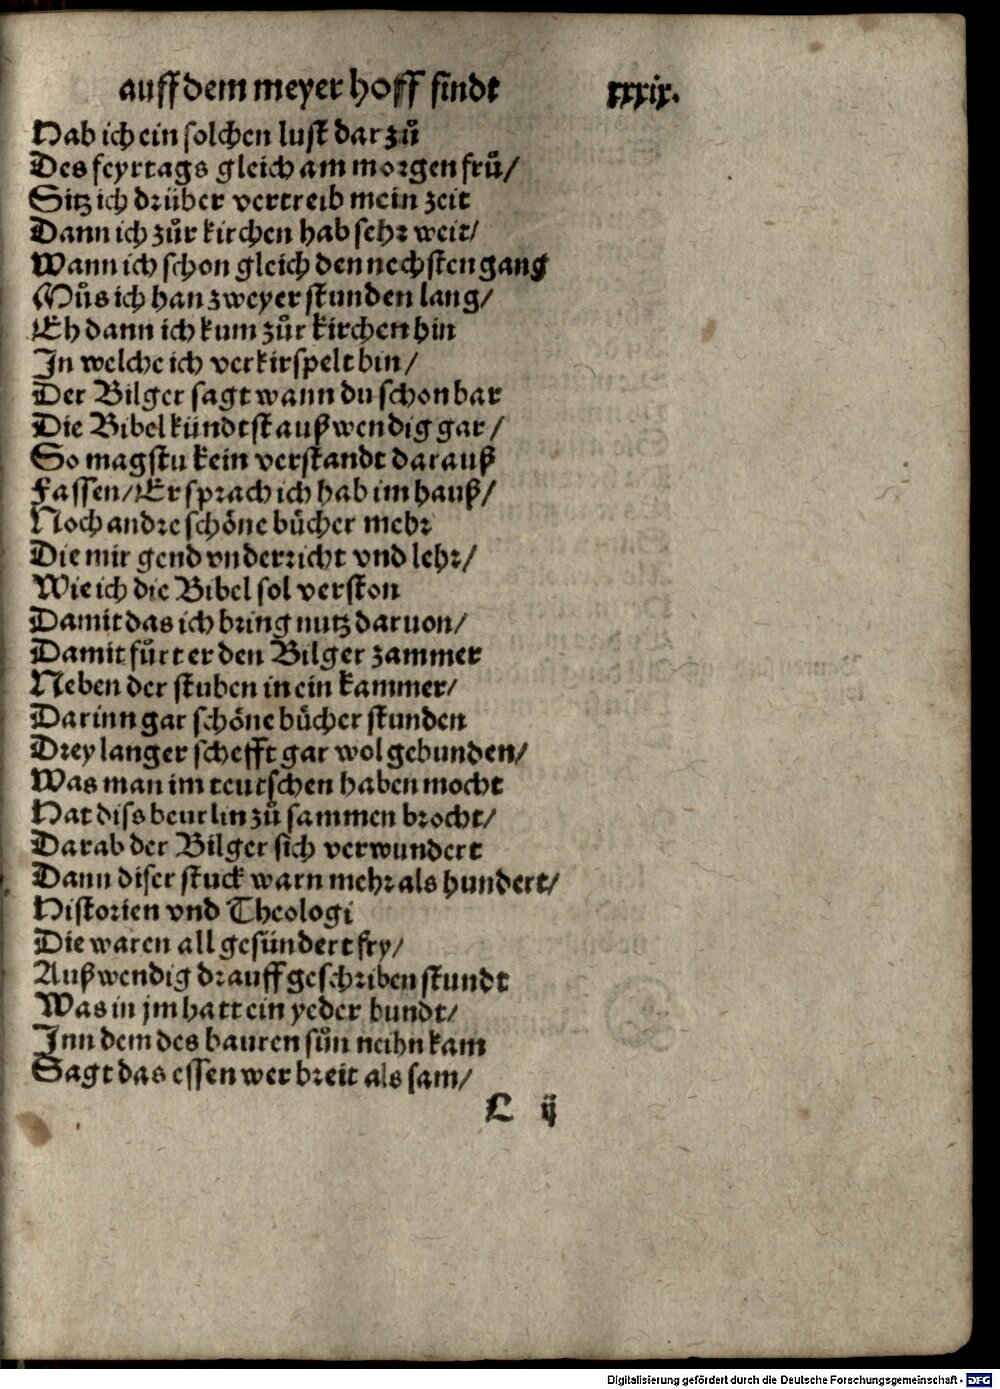 auff dem meyer hoff findt xxxix.
Hab ich ein solchen lust dar zuͦ
Des feyrtags gleich am morgen fruͤ/
Sitz ich drüber vertreib mein zeit
Dann ich zuͦr kirchen hab sehr weit/
Wann ich schon gleich den nechsten gang
Muͦs ich han zweyer stunden lang/
Eh dann ich kum zuͦr kirchen hin
In welche ich verkirspelt bin/
Der Bilger sagt wann du schon bar
Die Bibel kündtst außwendig gar/
So magstu kein verstandt darauß
Fassen/Er sprach ich hab im hauß/
Noch andre schöne buͤcher mehr
Die mir gend vnderricht vnd lehr/
Wie ich die Bibel sol verston
Damit das ich bring nutz daruon/
Damit fuͤrt er den Bilger zammer
Neben der stuben in ein kammer/
Darinn gar schöne buͤcher stunden
Drey langer schefft gar wol gebunden/
Was man im teutschen haben mocht
Hat diss beurlin zuͦ sammen brocht/
Darab der Bilger sich verwundert
Dann diser stuck warn mehr als hundert/
Historien vnd Theologi
Die waren all gesündert fry/
Außwendig drauff geschriben stundt
Was in jm hatt ein yeder bundt/
Inn dem des bauren suͦn neihn kam
Sagt das essen wer breit als sam/
L ij
Digitalisierung gefördert durch die Deutsche Forschungsgemeinschaft - DFG